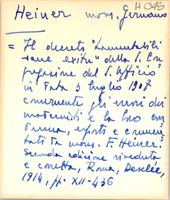 H 045
Heiner mons. Germano
= Il decreto "Lamentabili
sane exitu" della S. Con
gregazione del S. Officio
in data 3 luglio 1907
concernente gli errori dei
modernisti e la loro con
danna, esposti e commen
tati da mons. F. Heiner.
Seconda edizione riveduta
e corretta, Roma, Desclée,
1914, pp. XII-436